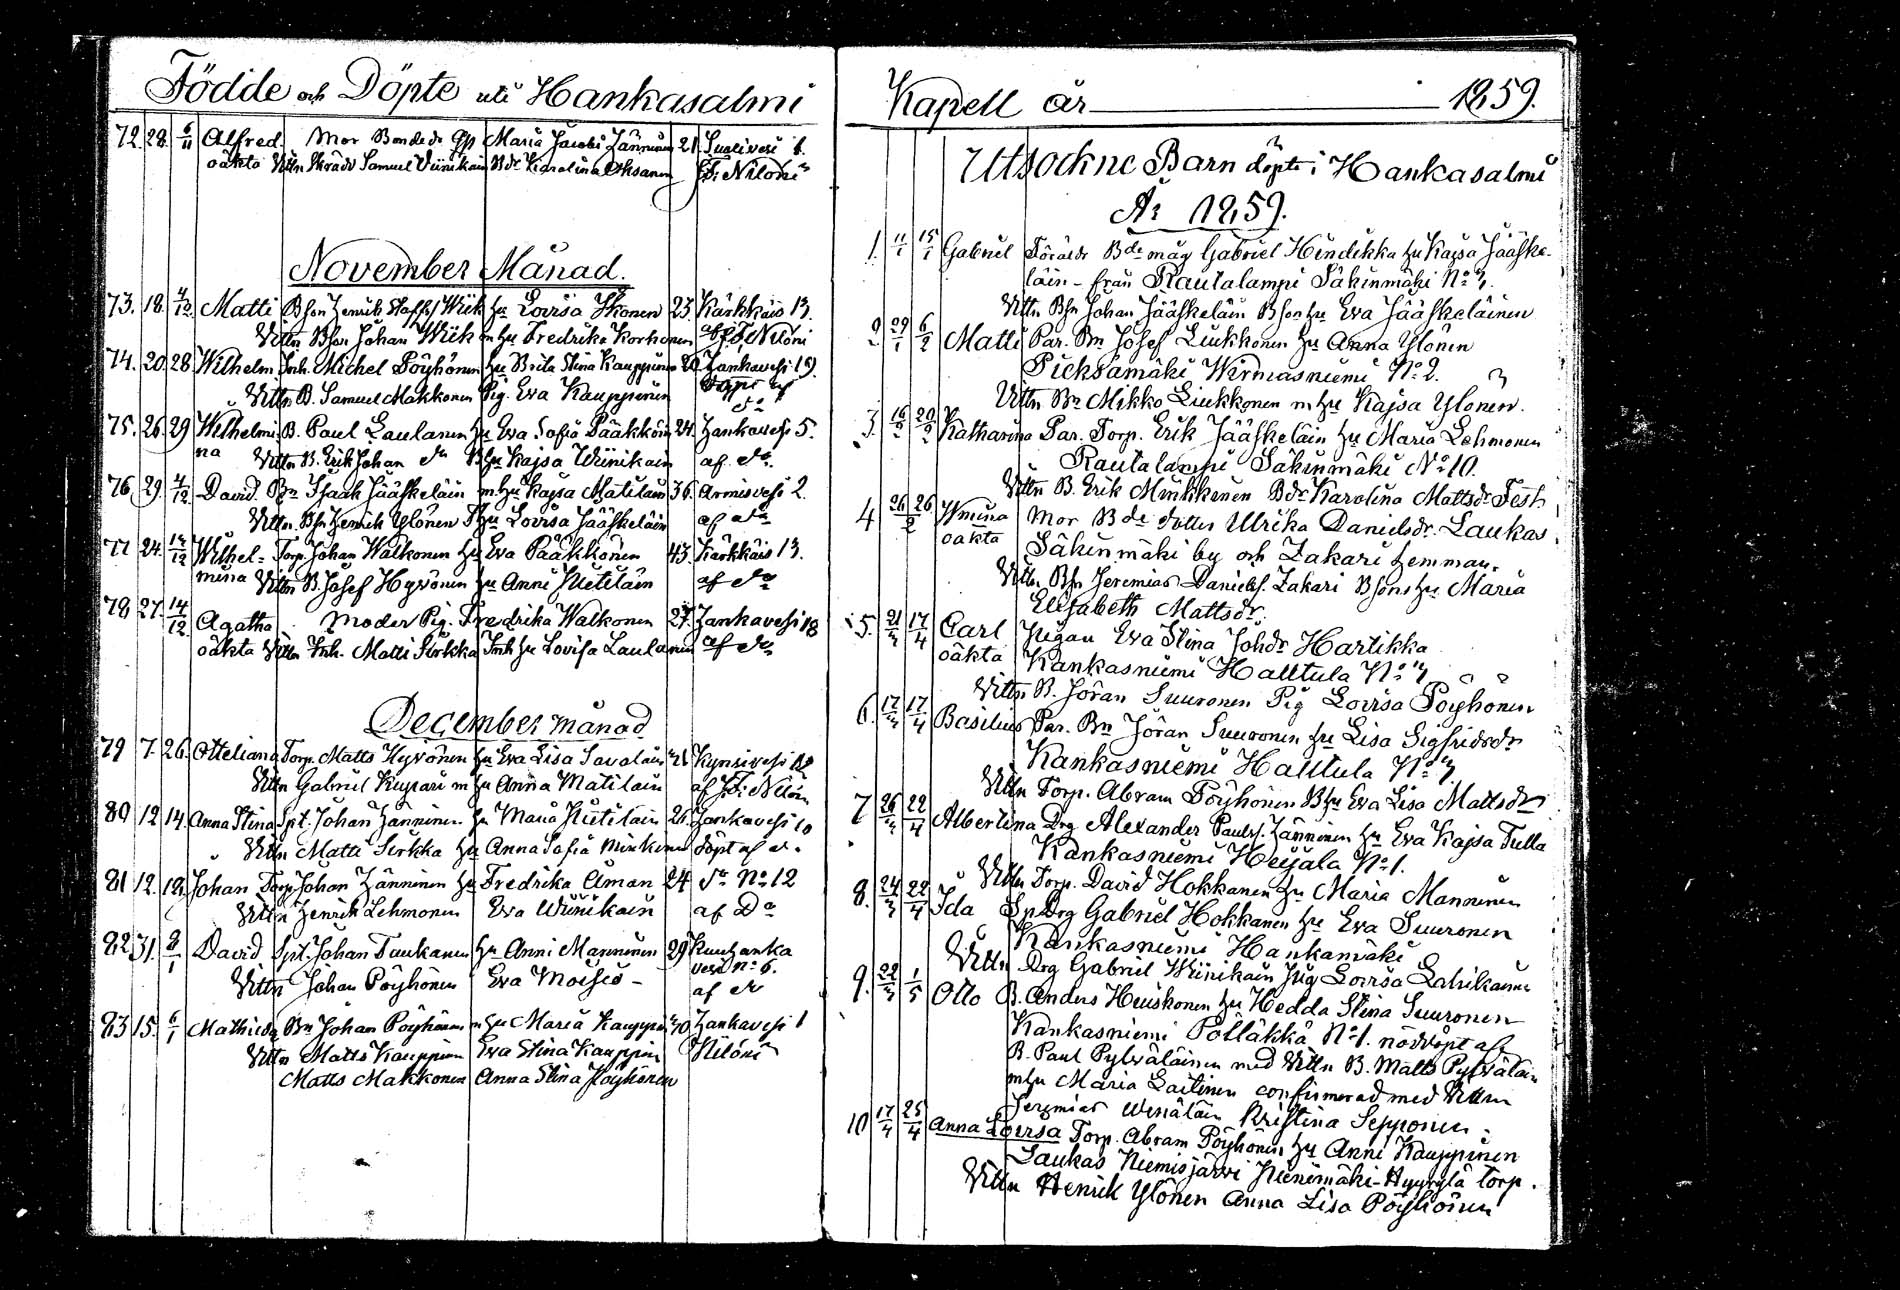 Födde och Döpte uti Hankasalmi
72. 28. 6/11 Alfred Mor Bondedr Maria Jacobsdr Hänninen 21. Suolivesi 6.
oäkta Vittn Skrädd Samuel Wiinikain Bdr Karolina Oksanen Nilonen
November Månad.
73. 18. 4/12 Matti Bson Henrik Staffs Wiik hu Lovisa Ikonen 23. Kärkkäis 13.
Vittn Bson Johan Wiik m hu Fredrika Korhonen af Niloni
74. 20. 28 Wilhelm Inh. Michel Pöyhönen hu Brita Stina Kauppinen Hankavesi 19.
Vittn B. Samuel Makkonen Pig. Eva Kauppinen döpt af do
75. 26. 29 Wilhelmi- B. Paul Laulanen hu Eva Sofia Pääkköin 24. Hankavesi 5.
na Vittn B. Erik Johan do Bhu Kajsa Wiinikain af do.
76. 29. 4/12 David. Bn Isaak Jääskeläin m hu Kajsa Matilain 36. Armisvesi 2.
Vittn. Bsn Henrik Ylönen hu Lovisa Jääskeläin af do
77 24. 14/12 Wilhel- Torp. Johan Walkonen hu Eva Pääkkönen 43. Kärkkäis 13.
mina Vittn B. Josef Hyvönen hu Anni Hietilain af do
78 27. 14/12 Agatha Moder Pig. Fredrika Walkonen 27. Hankavesi 18
oäkta Vittn Inh. Matti Sirkka Inh hu Lovisa Laulanen af do
December månad
79 7. 26. Otteliana Torp. Matts Hyvönen hu Eva Lisa Savolain 21 Kynsivesi
Vittn Gabriel Kupari m hu Anna Matilain af Nilon
80 12 14. Anna Stina Spt. Johan Hänninen hu Maria Hietilain 26. Hankavesi 10
Vittn Matti Sirkka hu Anna Sofia Minkinen döpt af d.
81 12. 19. Johan Torp Johan Hänninen hu Fredrika Åman 24 do No 12
Vittn Henrik Lehmonen Eva Wiinikain af Do
82 31. 8/1 David Spt. Johan Tuukanen hu Anni Manninen 29 Kuuhanka
Vittn Johan Pöyhönen Eva Moisio - vesi No 6.
af do
83 15. 6/1 Mathilda Bn Johan Pöyhönen m hu Maria Kauppin 40 Hankavesi 1
Vittn Matts Kauppin Eva Stina Kauppin Niloni
Matts Makkonen Anna Stina Pöyhönen
Kapell år 1859.
Utsockne Barn döpte i Hankasalmi
År 1859.
1. 11/1 15/1 Gabriel Föräldr Bde måg Gabriel Hindikka hu Kajsa Jääske-
läin - från Rautalampi Säkinmäki No 7.
Vittn Bsn Johan Jääskeläin Bson hu Eva Jääskeläinen
2 29/1 6/2 Matti Par. Bn Josef Liukkonen hu Anna Ylönen
Pieksämäki Wirmasniemi No 2.
Vittn Bn Mikko Liukkonen m hu Kajsa Ylönen.
3. 16/2 20/2 Katharina Par. Torp. Erik Jääskeläin hu Maria Lehmonen
Rautalampi Säkinmäki No 10.
Vittn B. Erik Minkkinen Bdr Karolina Mattsdr
4 26/2 26 Wmina Mor Bde dotter Ulrika Danielsdr. Laukas
oäkta Säkinmäki by och Zakari hemman.
Vittn Bsn Jeremias Daniels. Zakari Bsons hu Maria
Elisabeth Mattsdr.
5. 21/3 17/4 Carl Pigan Eva Stina Johdr Hartikka
oäkta Kankasniemi Halttula No 7
Vittn B. Jöran Suuronen Pig Lovisa Pöyhönen
6. 17/3 17/4 Basilius Par. Bn Jöran Suuronen hu Lisa Sigfridsdr
Kankasniemi Halttula No 7.
Vittn Torp. Abram Pöyhönen Bhu Eva Lisa Mattsdr
7 26/3 22/4 Albertina Drg Alexander Pauls. Hänninen hu Eva Kajsa Tulla
Kankasniemi Heijala No 1.
Vittn Torp. David Hokkanen hu Maria Manninen
8. 24/3 22/4 Ida Sp Drg Gabriel Hokkanen hu Eva Suuronen
Kankasniemi Hankamäki
Vittn Drg Gabriel Wiinikain Pig Lovisa Lahikainen
9. 22/3 1/5 Otto B. Anders Heiskonen hu Hedda Stina Suuronen
Kankasniemi Pölläkkä No 1. nöddöpt af
B. Paul Pylväläinen med Vittn B. Matts Pylväläin
m hu Maria Laitinen confirmerad med Vittn
Jeremias Wesaläin Kristina Sepponen.
10 17/4 25/4 Anna Lovisa Torp. Abram Pöyhönen hu Anni Kauppinen
Laukas Niemisjärvi Pienimäki-Hyyrylä torp.
Vittn Henrik Ylönen Anna Lisa Pöyhönen